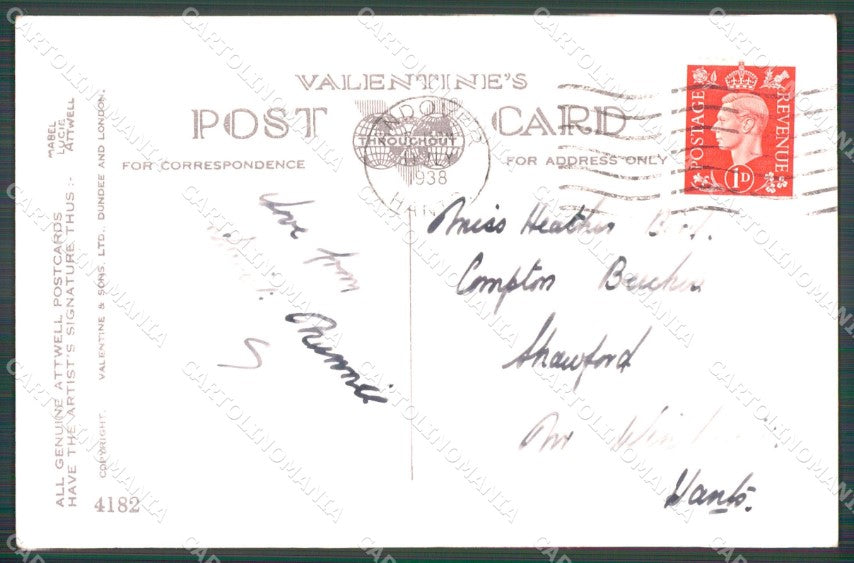 VALENTINE'S
POST CARD
THROUGHOUT
FOR CORRESPONDENCE
FOR ADDRESS ONLY
ANDOVER
1938
HANTS
POSTAGE
REVENUE
1D
Love from
Minnie
Miss Heather
Compton
Shawford
Nr
Hants.
ALL GENUINE ATTWELL POSTCARDS
HAVE THE ARTIST'S SIGNATURE THUS :-
MABEL
LUCIE
ATTWELL
COPYRIGHT. VALENTINE & SONS, LTD., DUNDEE AND LONDON.
4182
CARTOLINOMANIA